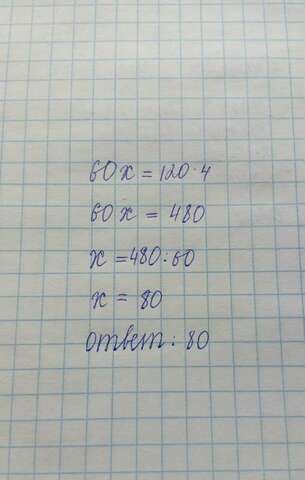 60x = 120·4
60x = 480
x = 480:60
x = 80
ответ: 80